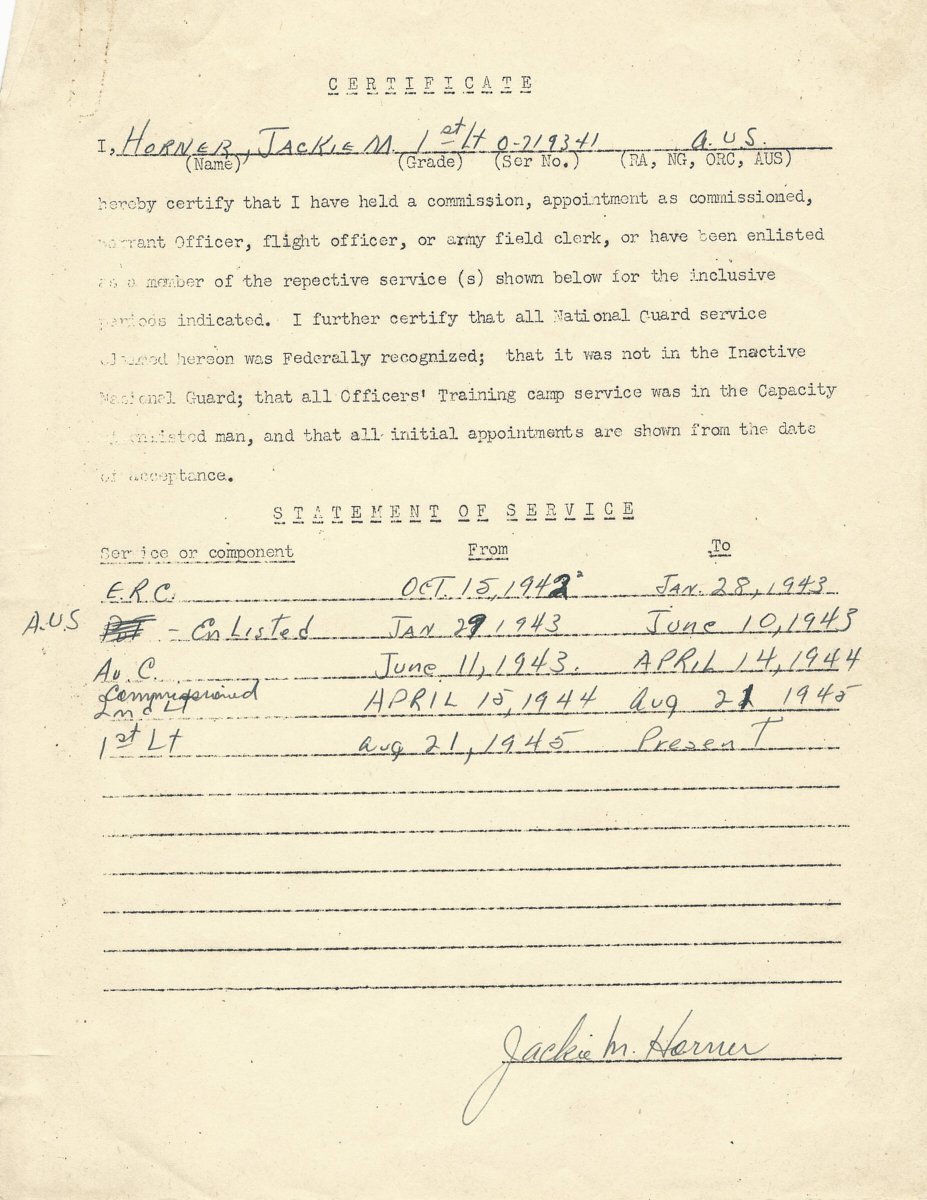 CERTIFICATE
I, HORNER, JACKIE M. 1st Lt 0-719341 A.US.
(Name) (Grade) (Ser No.) (RA, NG, ORC, AUS)
hereby certify that I have held a commission, appointment as commissioned,
warrant Officer, flight officer, or army field clerk, or have been enlisted
as a member of the repective service (s) shown below for the inclusive
periods indicated. I further certify that all National Guard service
claimed hereon was Federally recognized; that it was not in the Inactive
National Guard; that all Officers' Training camp service was in the Capacity
of enlisted man, and that all initial appointments are shown from the date
of acceptance.
STATEMENT OF SERVICE
Service or component From To
E.R.C. OCT. 15, 1942 2 JAN. 28, 1943
A.U.S - EnListed JAN 29 1943 June 10, 1943
Av. C. June 11, 1943. APRIL 14, 1944
Commissioned
2nd Lt APRIL 15, 1944 Aug 21 1945
1st Lt Aug 21, 1945 Present
Jackie M. Horner